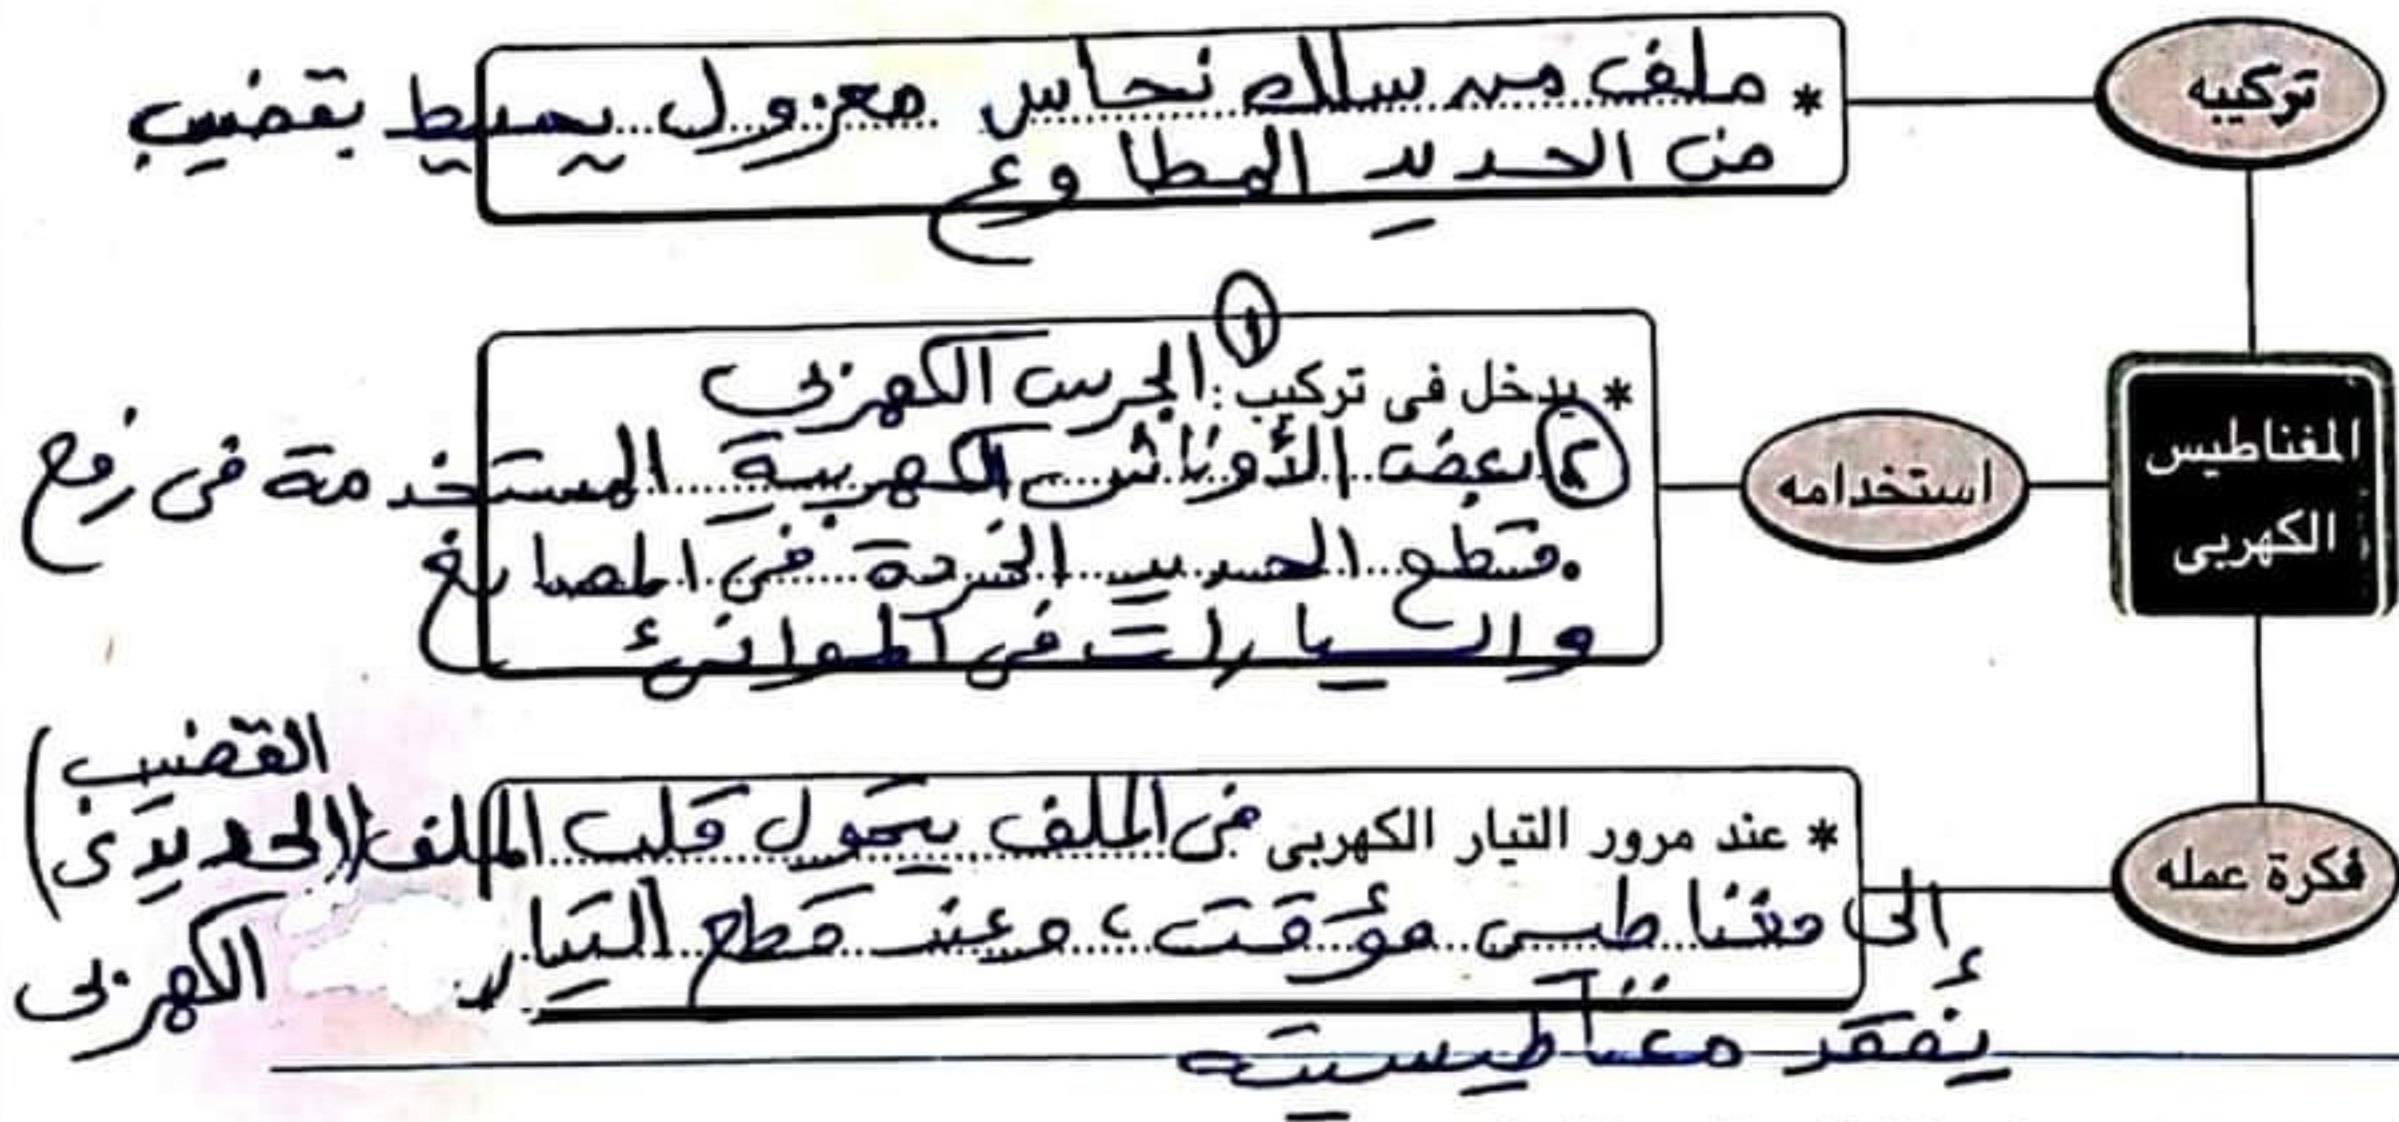 تركيبه
* ملف من سلك نحاس معزول يحيط بقضيب
من الحديد المطاوع
المغناطيس
الكهربى
استخدامه
* يدخل فى تركيب: ١ الجرس الكهربى
٢ بعض الأوناش الكهربية المستخدمة فى رفع
قطع الحديد الخردة فى المصانع
والسيارات فى الموانئ
فكرة عمله
* عند مرور التيار الكهربى فى الملف يتحول قلب الملف (القضيب الحديدى)
إلى مغناطيس مؤقت، وعند قطع التيار الكهربى
يفقد مغناطيسيته